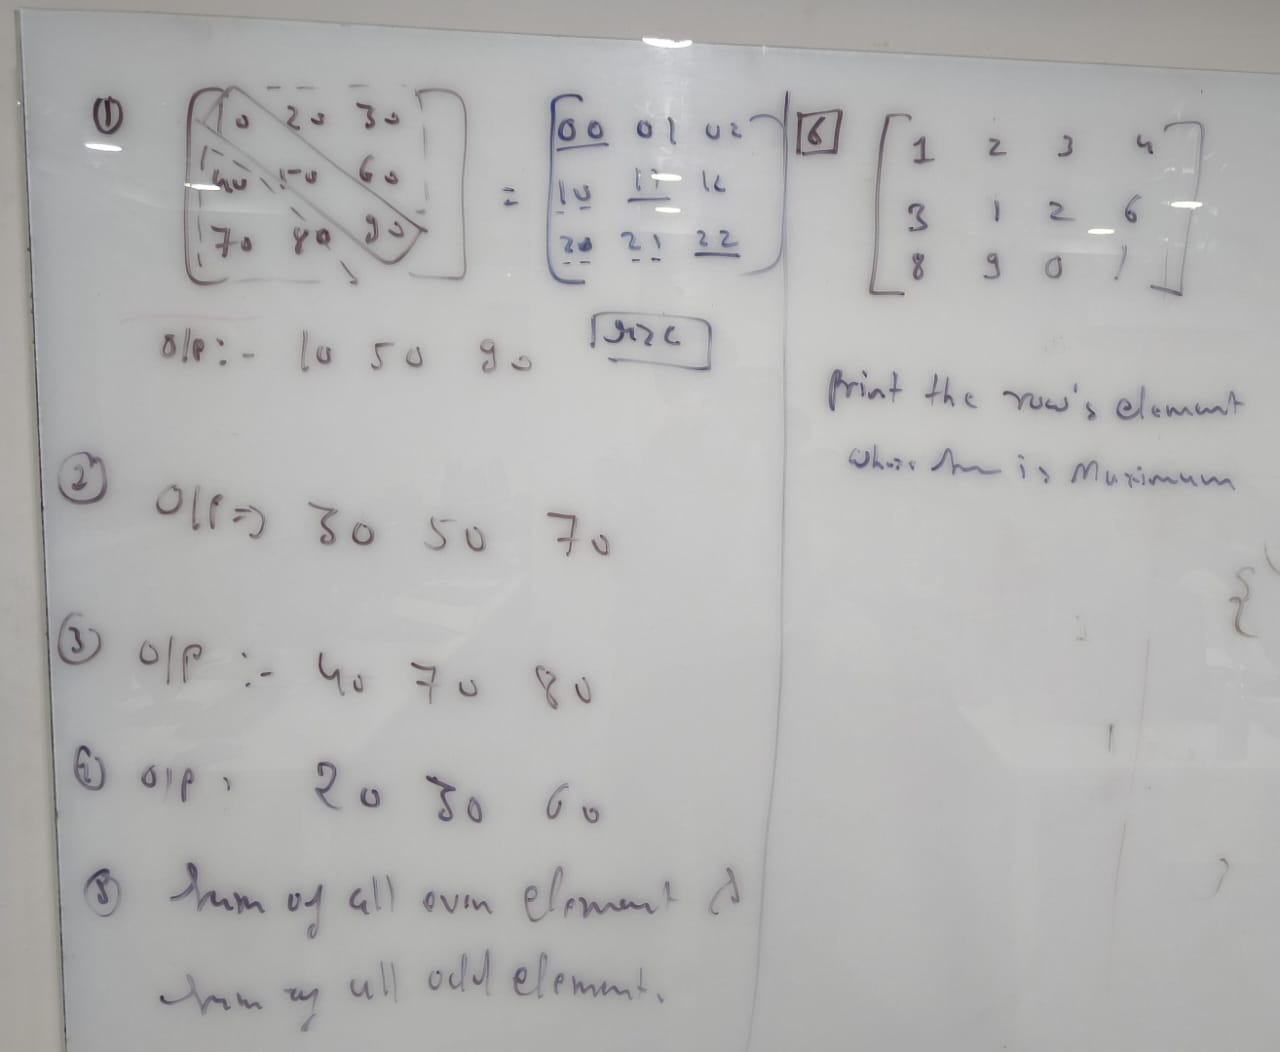 ① 10 20 30
40 50 60
70 80 90
= 00 01 02
10 11 12
20 21 22
O/P :- 10 50 90
r>c
② O/P => 30 50 70
③ O/P :- 40 70 80
④ O/P : 20 30 60
⑤ Sum of all even element &
sum of all odd element.
6 1 2 3 4
3 1 2 6
8 9 0 1
Print the row's element
whose sum is Maximum
{